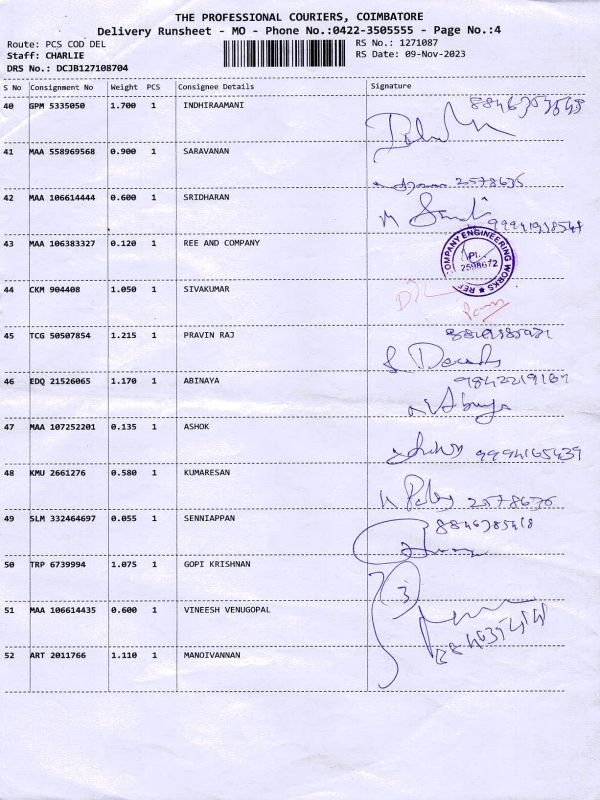 THE PROFESSIONAL COURIERS, COIMBATORE
Delivery Runsheet - MO - Phone No.:0422-3505555 - Page No.:4
Route: PCS COD DEL
RS No.: 1271087
Staff: CHARLIE
RS Date: 09-Nov-2023
DRS No.: DCJB127108704
S No Consignment No Weight PCS Consignee Details Signature
40 GPM 5335050 1.700 1 INDHIRAAMANI
41 MAA 558969568 0.900 1 SARAVANAN
2578635
42 MAA 106614444 0.600 1 SRIDHARAN
43 MAA 106383327 0.120 1 REE AND COMPANY
COMPANY ENGINEERING WORKS
2598672
44 CKM 904408 1.050 1 SIVAKUMAR
45 TCG 50507854 1.215 1 PRAVIN RAJ
46 EDQ 21526065 1.170 1 ABINAYA
47 MAA 107252201 0.135 1 ASHOK
9994165439
48 KMU 2661276 0.580 1 KUMARESAN
49 SLM 332464697 0.055 1 SENNIAPPAN
50 TRP 6739994 1.075 1 GOPI KRISHNAN
3
51 MAA 106614435 0.600 1 VINEESH VENUGOPAL
52 ART 2011766 1.110 1 MANOIVANNAN